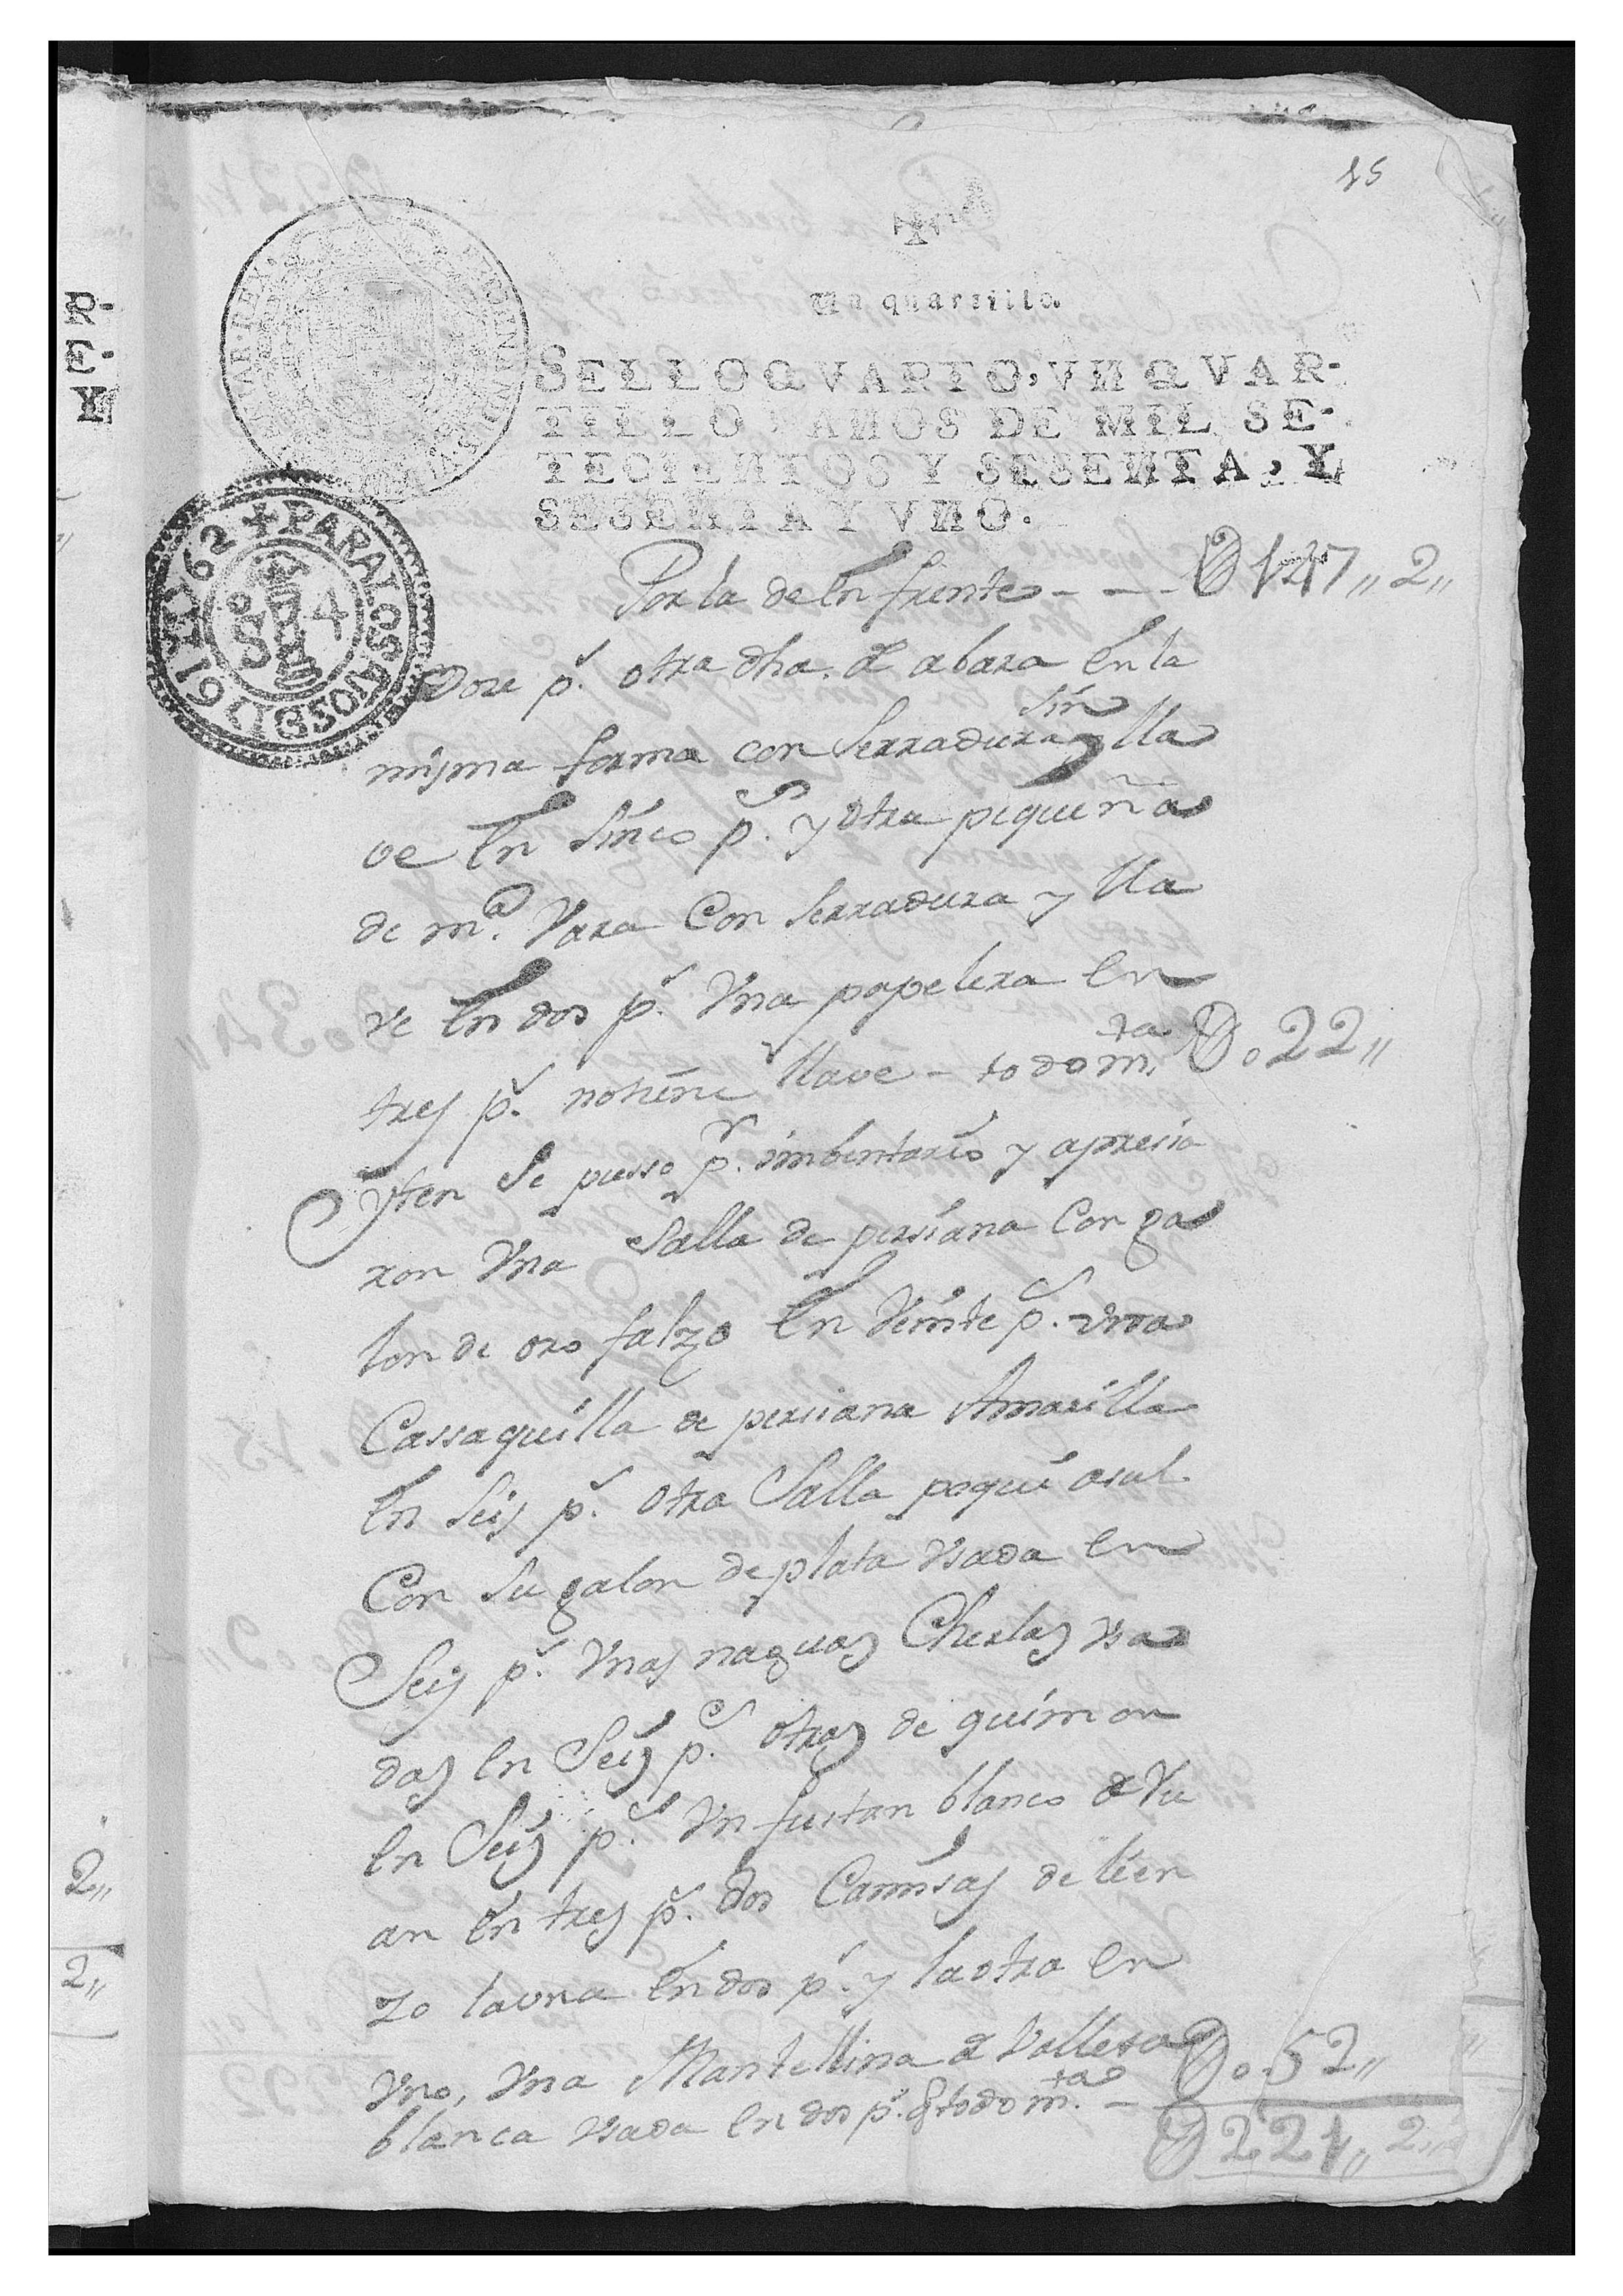 15
Un quartillo.
SELLO QVARTO, VN QVAR-
TILLO, AÑOS DE MIL SE-
TECIENTOS Y SESENTA, Y
SESENTA Y VNO.
PARA LOS AÑOS DE 1761 Y 62
So 4
Por la de enfrente - - - 147,, 2,,
Doze ps. otra dha. de abara en la
misma forma con serradura sin lla
ve en sinco ps. y otra pequeña
de ma. Vara Con serradura y lla
ve en dos ps. Vna papelera en
tres ps. notiene llave - todo mta 0.22,,
Yten Se pusso pr. imbentario y apresia
ron Vna Salla de persiana Con ga
lon de oro falzo en Veinte ps. vna
Cassaquilla de persiana Amarilla
en seis ps. otra Salla pequi asul
Con su galon de plata vsada en
Seis ps. Vnas naguas Cherlas vsa
das en Seis ps. otras de quimon
en Seis ps. Vn fustan blanco de Ru
an en tres ps. dos Camisas de lien
zo la vna en dos ps. y la otra en
Vno, Vna Mantellina de Valleta 0.52,,
blanca vsada en dos ps. todo mta. -
221,, 2,,
R-
E-
Y
2,,
2,,